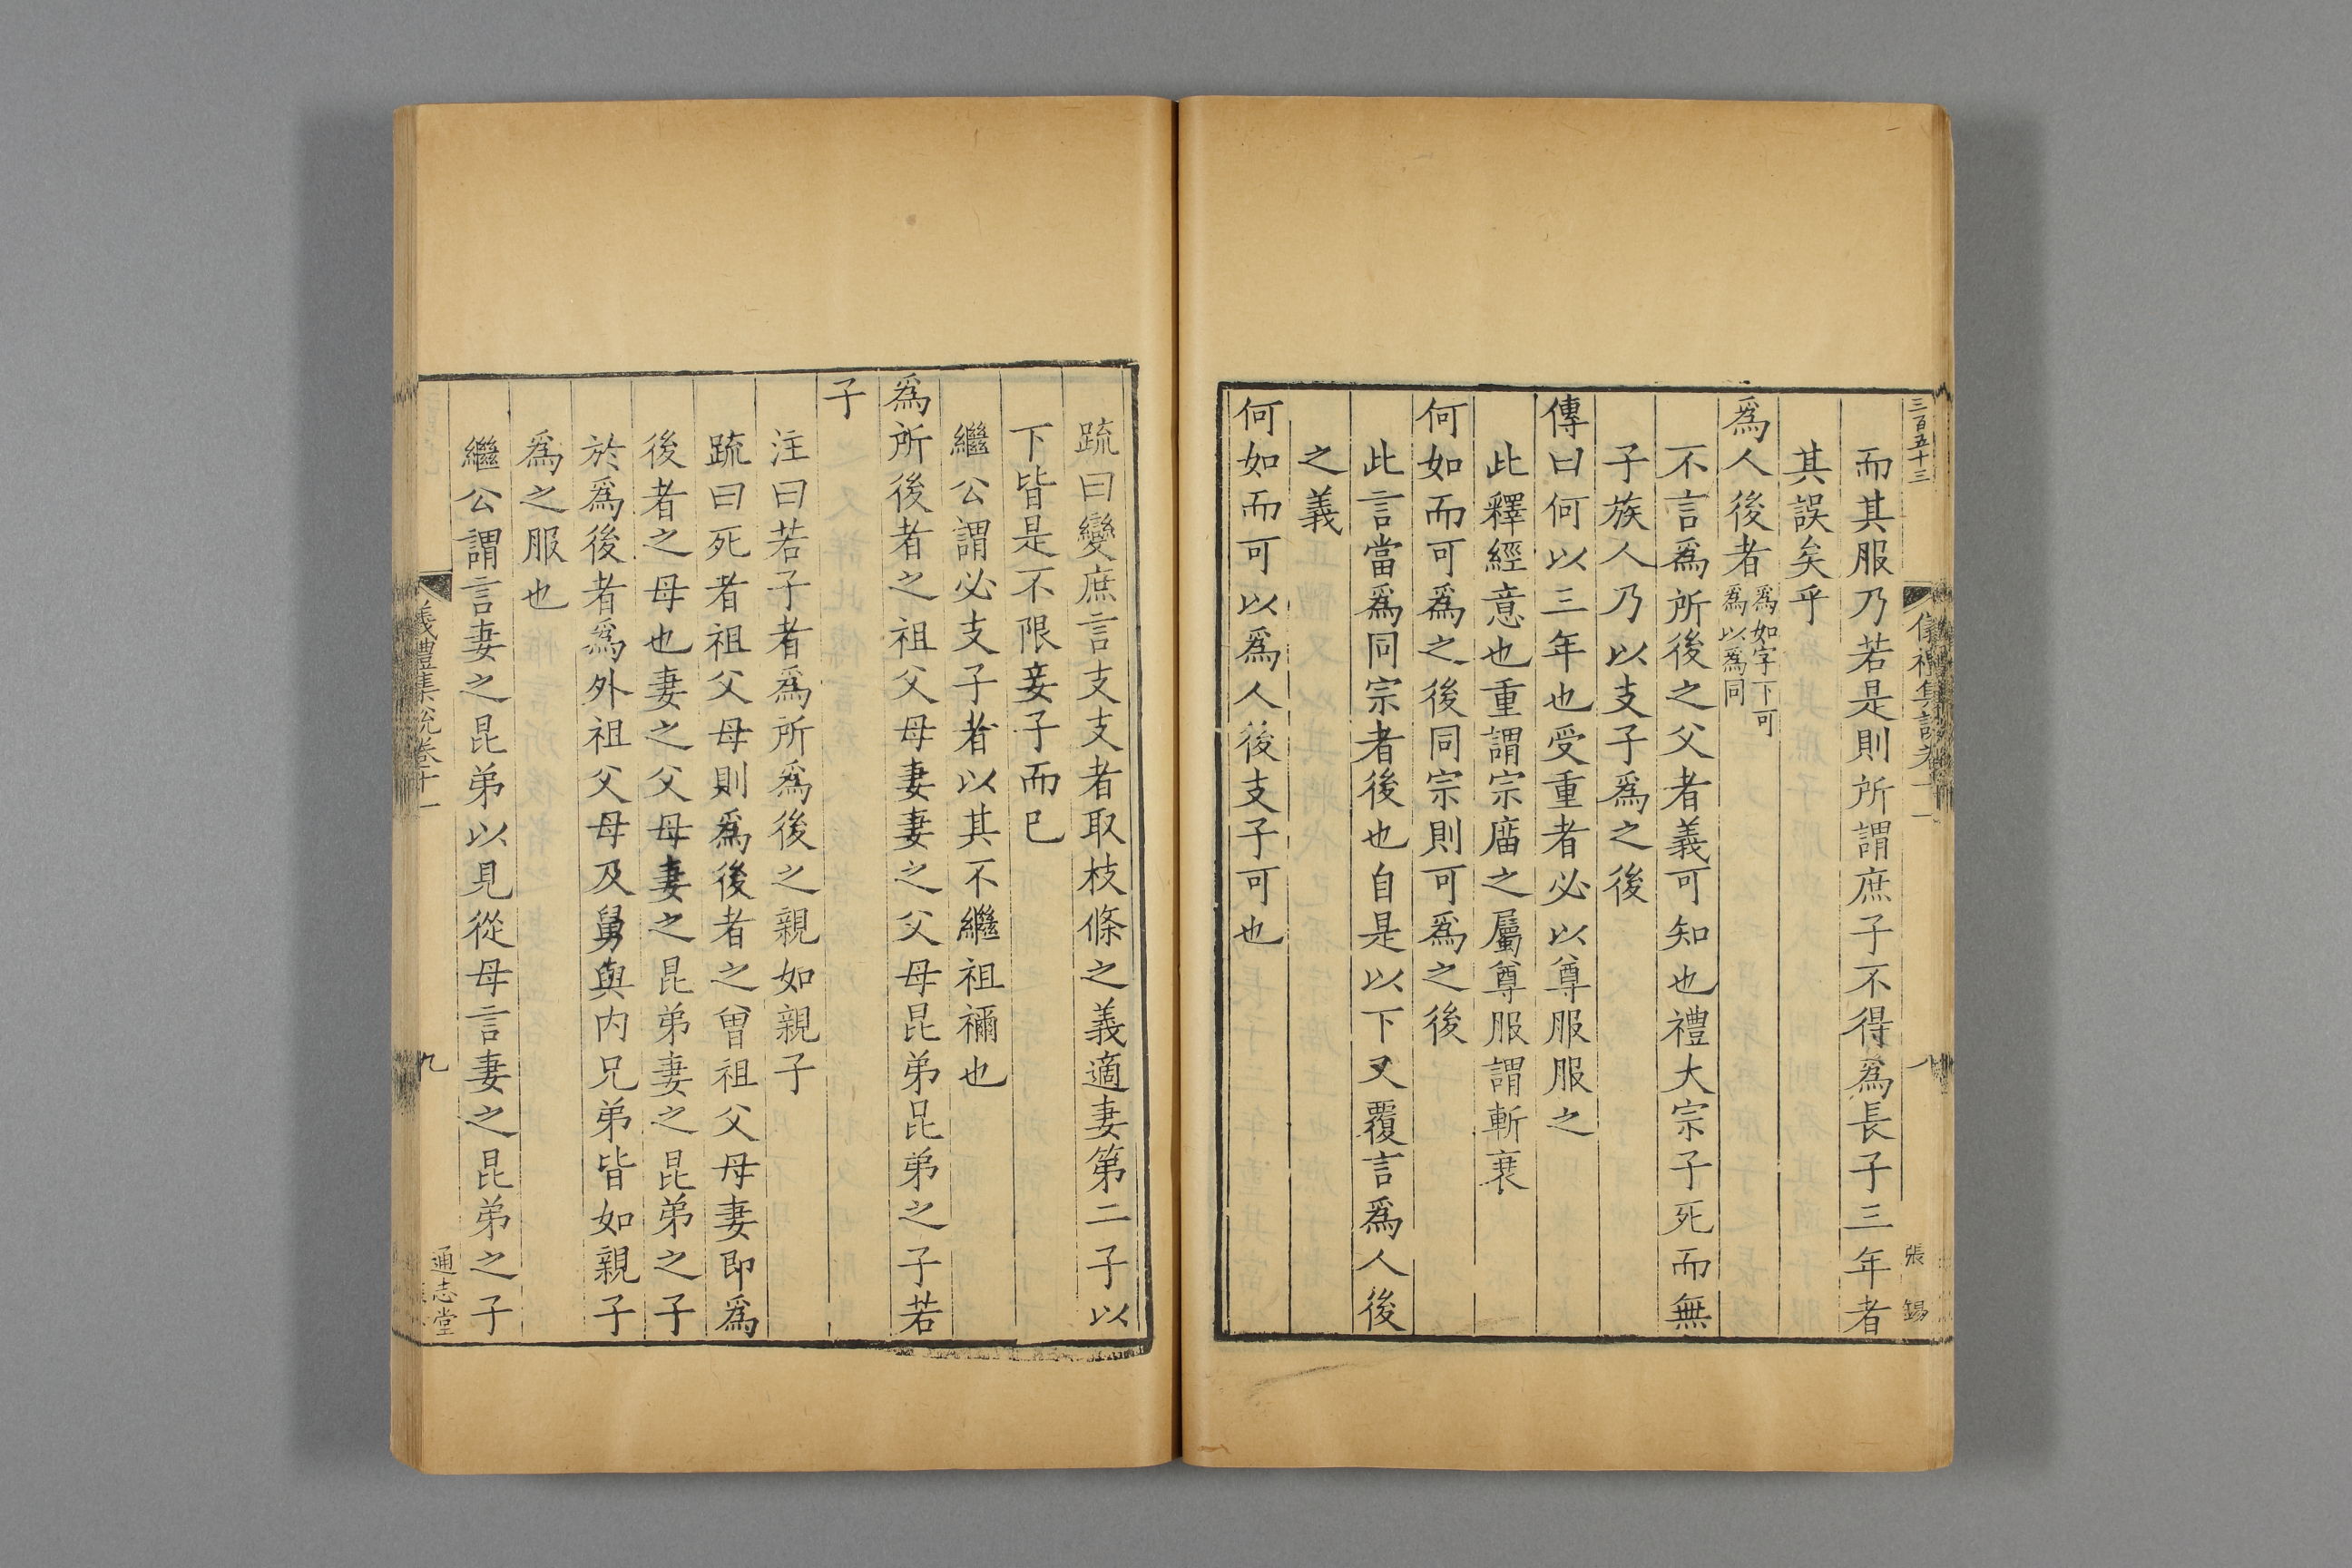 三百五十三
儀禮集說卷十一
八
張錫
而其服乃若是則所謂庶子不得爲長子三年者
其誤矣乎
爲人後者爲如字下可爲以爲同
不言爲所後之父者義可知也禮大宗子死而無
子族人乃以支子爲之後
傳曰何以三年也受重者必以尊服服之
此釋經意也重謂宗廟之屬尊服謂斬衰
何如而可爲之後同宗則可爲之後
此言當爲同宗者後也自是以下又覆言爲人後
之義
何如而可以爲人後支子可也
疏曰變庶言支支者取枝條之義適妻第二子以
下皆是不限妾子而已
繼公謂必支子者以其不繼祖禰也
爲所後者之祖父母妻妻之父母昆弟昆弟之子若
子
注曰若子者爲所爲後之親如親子
疏曰死者祖父母則爲後者之曾祖父母妻即爲
後者之母也妻之父母妻之昆弟妻之昆弟之子
於爲後者爲外祖父母及舅與內兄弟皆如親子
爲之服也
繼公謂言妻之昆弟以見從母言妻之昆弟之子
儀禮集說卷十一
九
通志堂